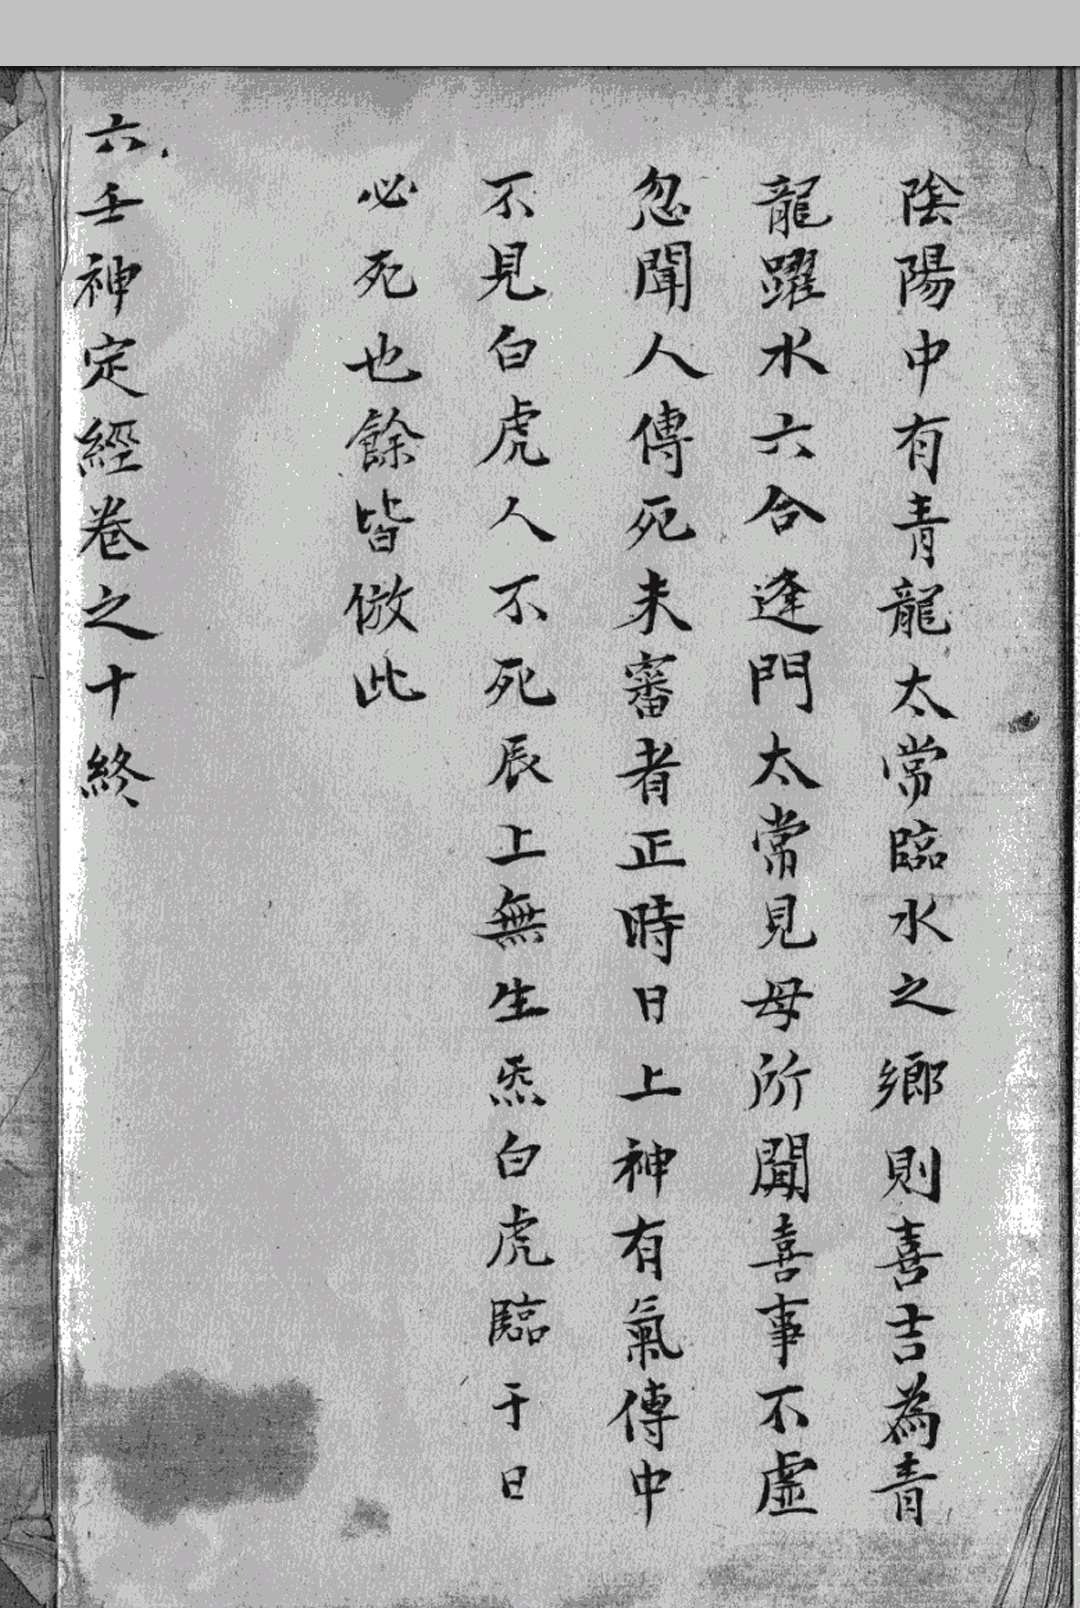 陰陽中有青龍太常臨水之鄉則喜吉為青
龍躍水六合逢門太常見母所聞喜事不虛
忽聞人傳死未審者正時日上神有氣傳中
不見白虎人不死辰上無生炁白虎臨于日
必死也餘皆倣此
六壬神定經卷之十終